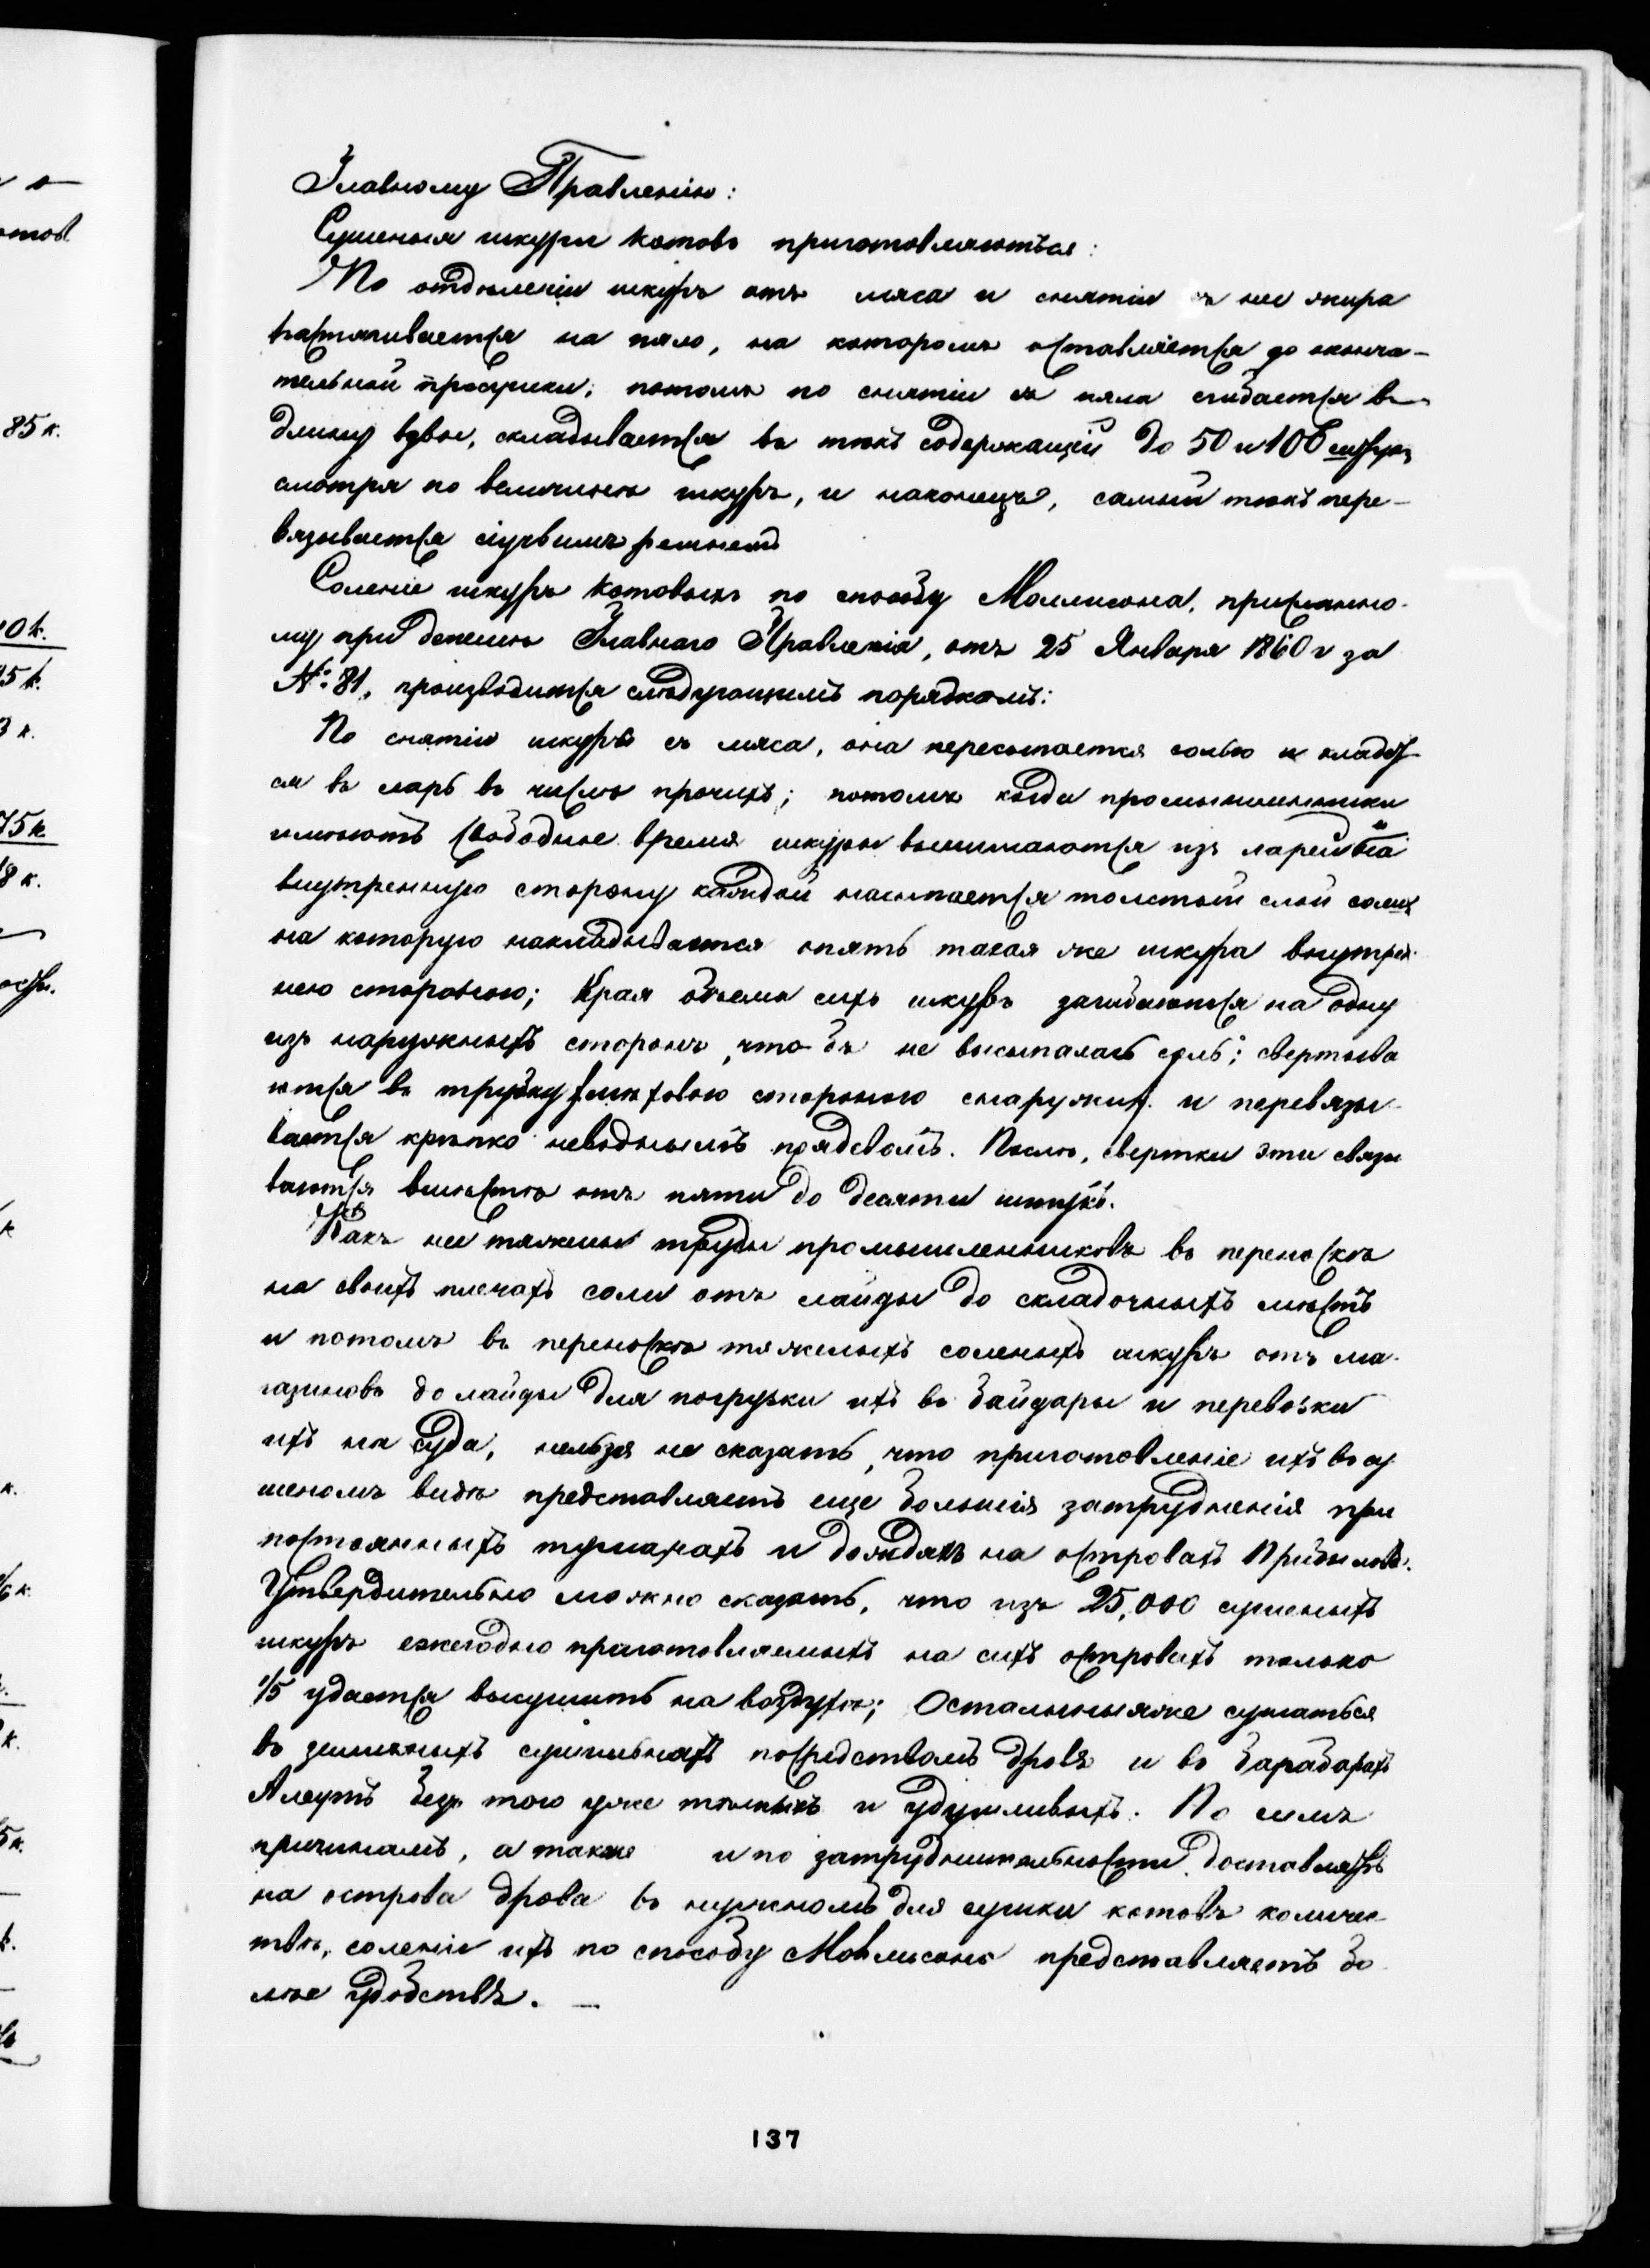 Главному Правленію:
Сушеныя шкуры котовъ приготовляютъся:
По отдѣленіи шкуръ отъ мяса и снятіи съ нее жира
растягивается на пяло, на которомъ оставляется до оконча-
тельной просушки; потомъ по снятіи съ пяла сгибается въ
длину вдвое, складывается въ тюкъ содержащій до 50 и 100 шкуръ
смотря по величинѣ шкуръ, и наконецъ, самый тюкъ пере-
вязывается сіучьимъ ремнемъ
Соленіе шкуръ котовыхъ по способу Моллисона, присланно-
му при депешѣ Главнаго Правленія, отъ 25 Января 1860 г за
№ 81, производится слѣдующимъ порядкомъ:
По снятіи шкуръ съ мяса, она пересыпается солью и кладет-
ся въ ларь въ числѣ прочихъ; потомъ когда промышленники
имѣютъ свободное время шкуры вынимаются изъ ларей и на
внутренную сторону каждой насыпается толстый слой соли,
на которую накладывается опять такая же шкура внутрен-
нею стороною; Края обѣихъ сихъ шкуръ загибаются на одну
изъ наружныхъ сторонъ, что бъ не высыпалась соль; свертыва
ются въ трубку стороною снаружи и перевязы-
вается крѣпко неводнымъ прядевомъ. Послѣ, свертки эти связы
ваются вмѣстѣ отъ пяти до десяти штукъ.
Какъ ни тяжелы труды промышленниковъ въ переноскѣ
на своихъ плечахъ соли отъ лайды до складочныхъ мѣстъ
и потомъ въ переноскѣ тяжелыхъ соленыхъ шкуръ отъ ма-
газиновъ до лайды для погрузки ихъ въ байдары и перевозки
ихъ на суда, нельзя не сказать, что приготовленіе ихъ въ су
шеномъ видѣ представляетъ еще большія затрудненія при
постоянныхъ туманахъ и дождяхъ на островахъ Прибылова.
Утвердительно можно сказать, что изъ 25,000 сушеныхъ
шкуръ ежегодно приготовляемыхъ на сихъ островахъ только
1/5 удается высушить на воздухѣ; Остальныя же сушаться
въ сушильняхъ посредствомъ дровъ и въ барабарахъ
Алеутъ безъ того уже темныхъ и удушливыхъ. По симъ
причинамъ, а также и по затруднительности доставлять
на острова дрова въ нужномъ для сушки котовъ количес
твѣ, соленіе ихъ по способу Моллисона представляетъ бо
лѣе удобствъ. —
137
85 к.
0 к.
5 к.
3 к.
75 к
8 к.